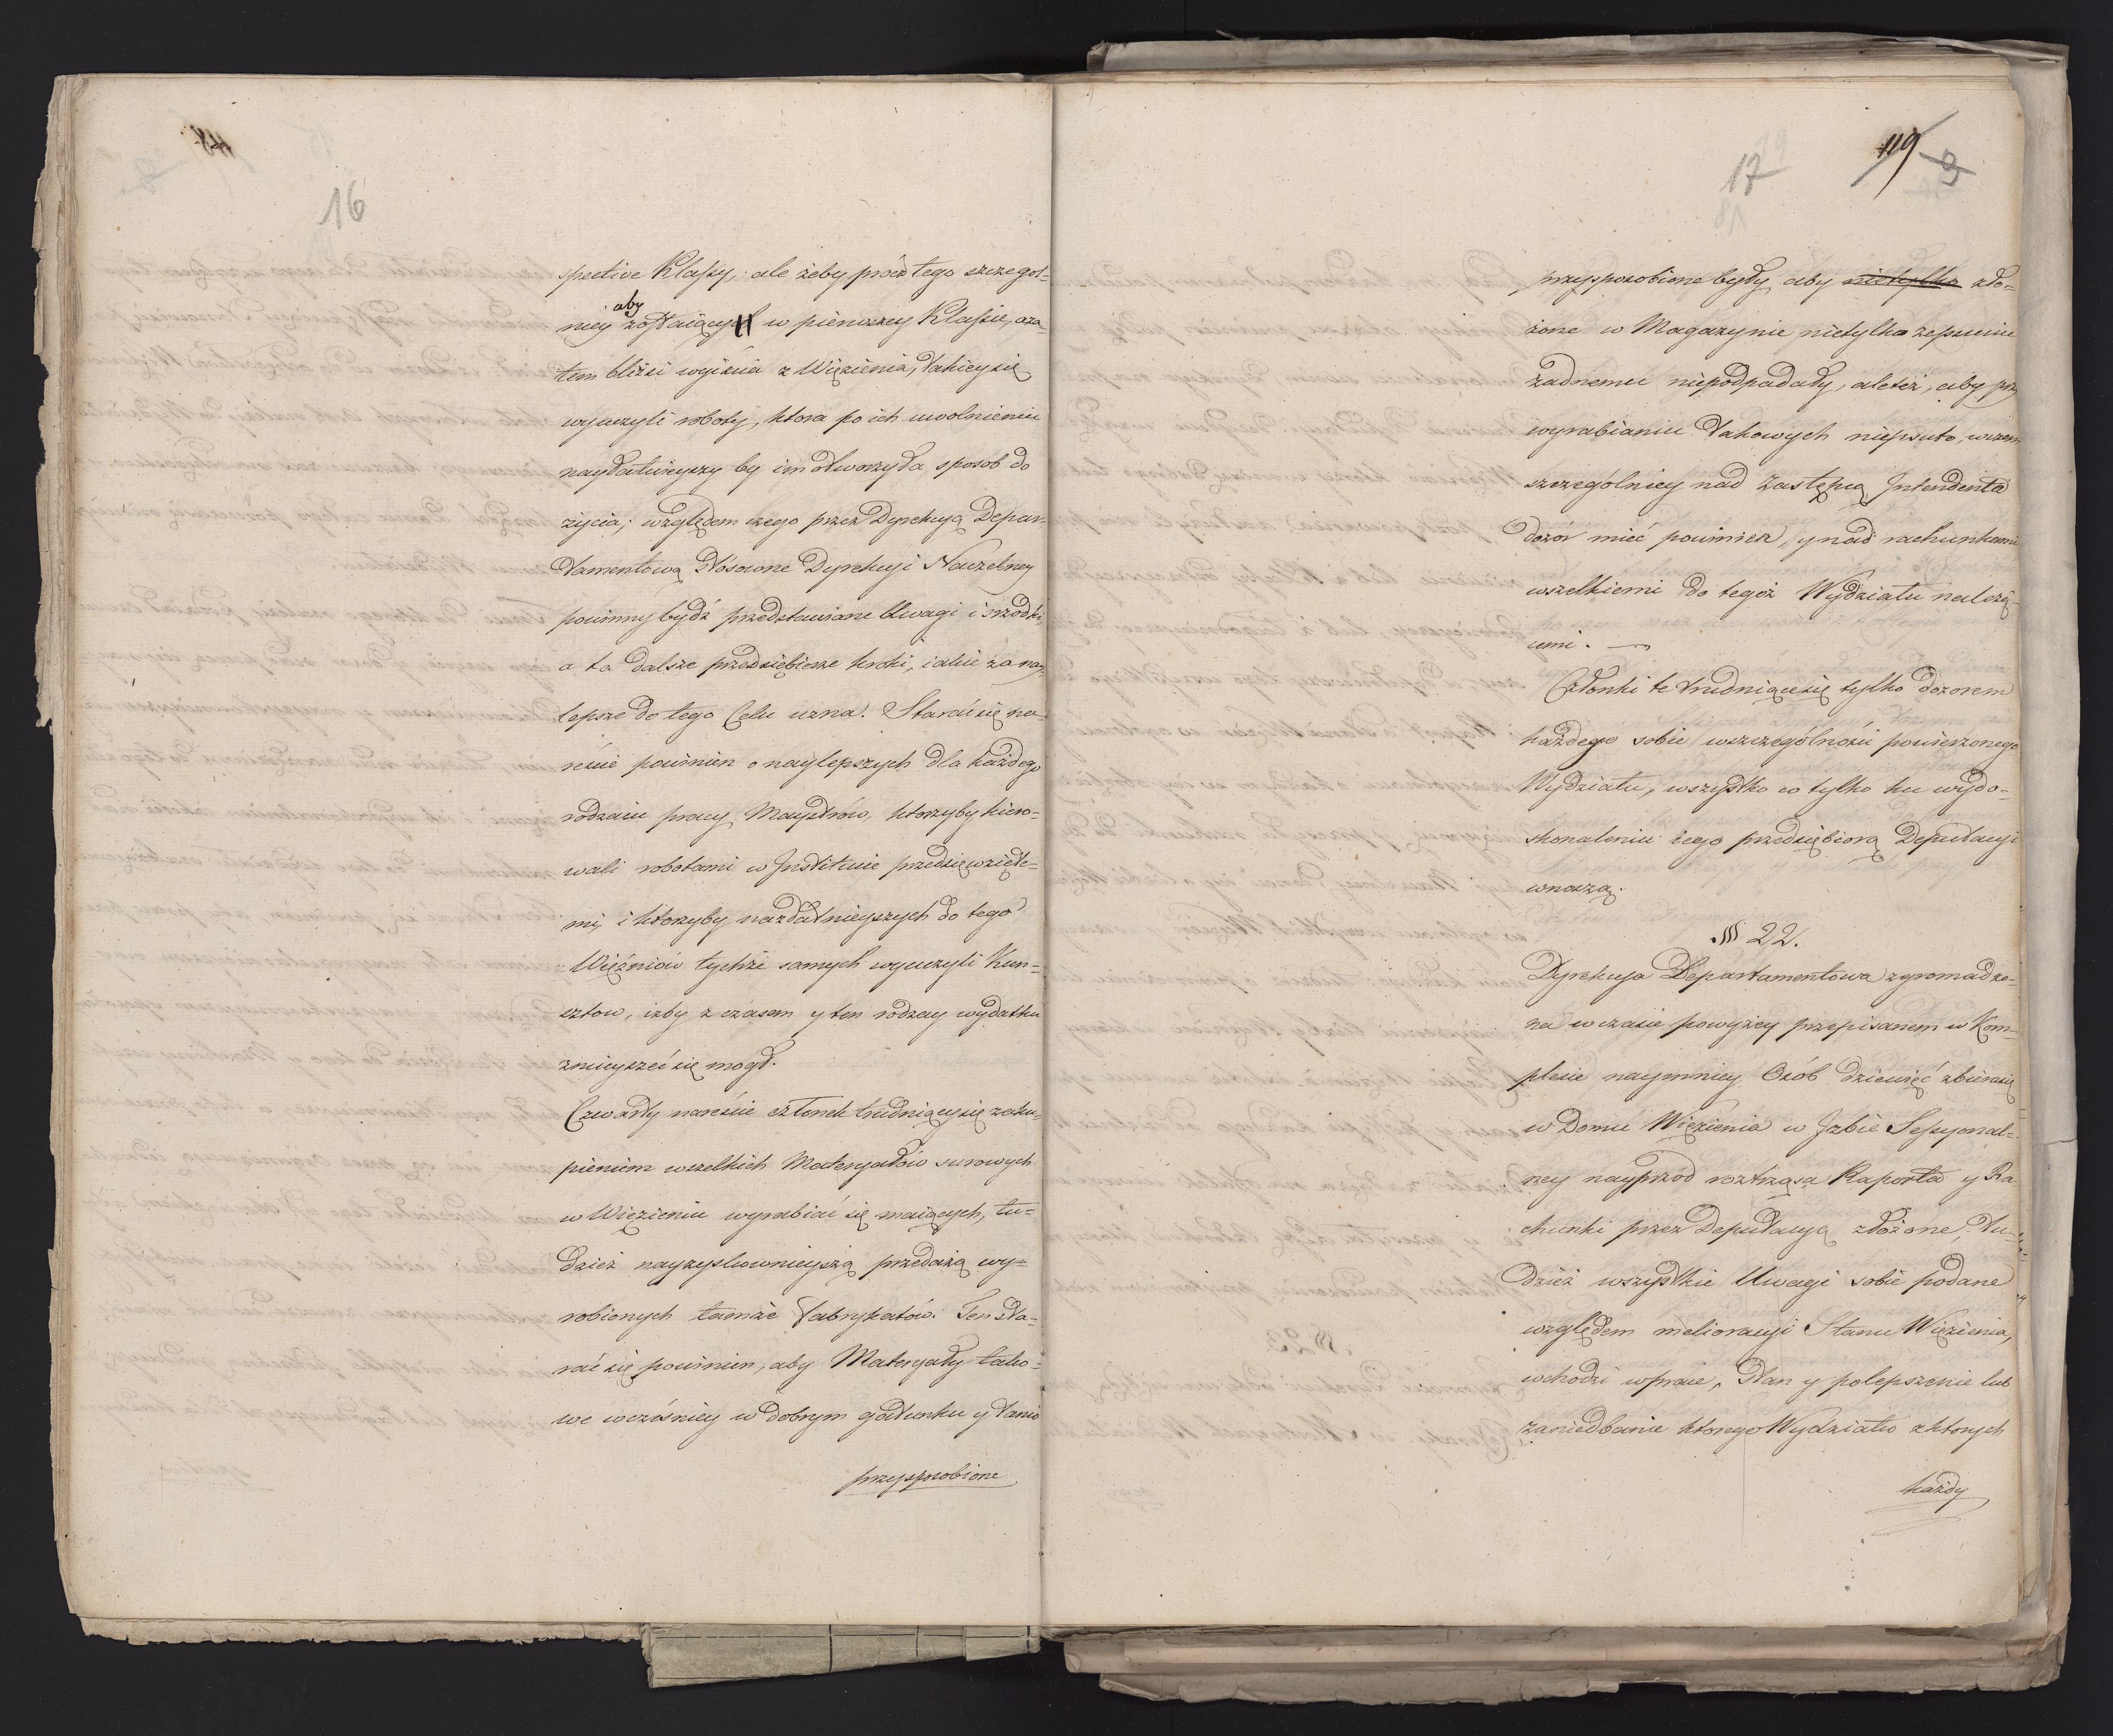 16
spective Klassy, ale żeby prócz tego szczegol=
niey aby zostaiący w pierwszey Klassie, a za=
tem bliźsi wyiścia z Więzienia, takiey się
wyuczyli roboty, ktora po ich uwolnieniu
nayłatwieyszy by im otworzyła sposob do
życia; względem czego przez Dyrekcyą Depar=
tamentową stosowne Dyrekcyi Naczelney
powinny bydź przedstawiane Uwagi i srzodki,
a ta dalsze przedsiębierze kroki, iakie za nay=
lepsze do tego Celu uzna. Starać się na=
reście powinien o naylepszych dla każdego
rodzaiu pracy Maystrów, ktorzyby kiero=
wali robotami w Institucie przedsięwzięte=
mi, i ktorzyby nazdatnieyszych do tego
Więźniów tychże samych wyuczyli Kun=
sztow, iżby z czasem y ten rodzay wydatku
zmieyszeć się mogł.
Czwarty nareście członek trudniący się zaku=
pieniem wszelkich Materyałów surowych
w Więzieniu wyrabiać się maiących, tu=
dzież nayzyskownieyszą przedażą wy=
robionych tamże Fabrykatów. Ten sta=
rać się powinien, aby Materyały tako=
we wcześniey w dobrym gatunku y tanio
przysposobione
17
119
9
przysposobione były, aby nietylko zło=
żone w Magazynie nietylko zepsuciu
żadnemu niepodpadały, ale też, aby przy
wyrabianiu takowych niepsuto, wszem
szczególniey nad Zastępcą Intendenta
dozór mieć powinien, y nad rachunkami
wszelkiemi do tegoż Wydziału należą=
cemi. —
Członki te trudniące się tylko dozorem
każdego sobie wszczególności powierzonego
Wydziału, wszystko co tylko ku wydo=
skonaleniu iego przedsiębiorą Deputacyi
wnoszą.
§ 22.
Dyrekcya Departamentowa zgromadzo=
na w czasie powyżey przepisanem w Kom=
plecie naymniey Osób dziewięć zbiera się
w Domu Więzienia w Izbie Sessyonal=
ney nayprzód roztrząsa Raporta y Ra
chunki przez Deputacyą złożone, tu=
dzież wszystkie Uwagi sobie podane
względem melioracyi Stanu Więzienia,
wchodzi w prace, stan y polepszenie lub
zaniedbanie ktorego Wydziału z ktorych
każdy